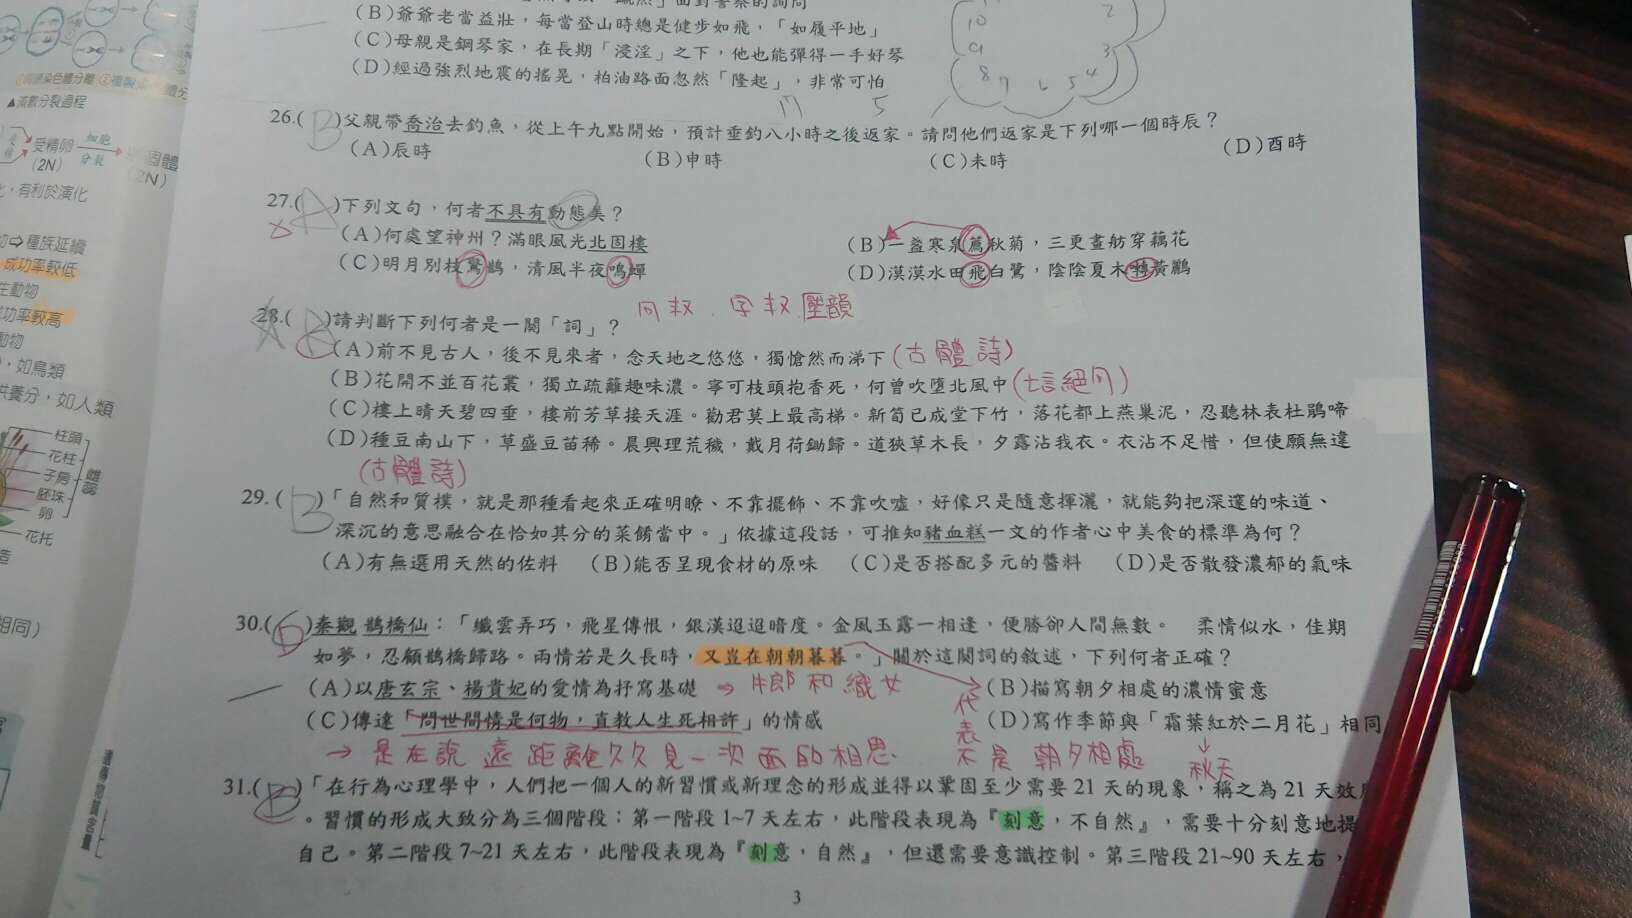 (B)爺爺老當益壯，每當登山時總是健步如飛，「如履平地」
(C)母親是鋼琴家，在長期「浸淫」之下，他也能彈得一手好琴
(D)經過強烈地震的搖晃，柏油路面忽然「隆起」，非常可怕
10
9
8
7
6
5
4
3
2
17
5
26.(B)父親帶喬治去釣魚，從上午九點開始，預計垂釣八小時之後返家。請問他們返家是下列哪一個時辰？
(A)辰時 (B)申時 (C)未時 (D)酉時
27.(A)下列文句，何者不具有動態美？
(A)何處望神州？滿眼風光北固樓 (B)一盞寒泉薦秋菊，三更畫舫穿藕花
(C)明月別枝驚鵲，清風半夜鳴蟬 (D)漠漠水田飛白鷺，陰陰夏木囀黃鸝
28.( )請判斷下列何者是一闋「詞」？
壓韻
(A)前不見古人，後不見來者，念天地之悠悠，獨愴然而涕下(古體詩)
(B)花開不並百花叢，獨立疏籬趣味濃。寧可枝頭抱香死，何曾吹墮北風中
(C)樓上晴天碧四垂，樓前芳草接天涯。勸君莫上最高梯。新筍已成堂下竹，落花都上燕巢泥，忍聽林表杜鵑啼
(D)種豆南山下，草盛豆苗稀。晨興理荒穢，戴月荷鋤歸。道狹草木長，夕露沾我衣。衣沾不足惜，但使願無違
(古體詩)
29.(B)「自然和質樸，就是那種看起來正確明瞭、不靠擺飾、不靠吹噓，好像只是隨意揮灑，就能夠把深邃的味道、
深沉的意思融合在恰如其分的菜餚當中。」依據這段話，可推知豬血糕一文的作者心中美食的標準為何？
(A)有無選用天然的佐料 (B)能否呈現食材的原味 (C)是否搭配多元的醬料 (D)是否散發濃郁的氣味
30.( )秦觀 鵲橋仙：「纖雲弄巧，飛星傳恨，銀漢迢迢暗度。金風玉露一相逢，便勝卻人間無數。 柔情似水，佳期
如夢，忍顧鵲橋歸路。兩情若是久長時，又豈在朝朝暮暮。」關於這闋詞的敘述，下列何者正確？
(A)以唐玄宗、楊貴妃的愛情為抒寫基礎 ⇒ 牛郎和織女 (B)描寫朝夕相處的濃情蜜意
(C)傳達「問世間情是何物，直教人生死相許」的情感 (D)寫作季節與「霜葉紅於二月花」相同
→ 是在說遠距離久久見一次面的相思
代表不是朝夕相處
秋天
31.(B)「在行為心理學中，人們把一個人的新習慣或新理念的形成並得以鞏固至少需要 21 天的現象，稱之為 21 天效
。習慣的形成大致分為三個階段：第一階段 1~7 天左右，此階段表現為『刻意，不自然』，需要十分刻意地提
自己。第二階段 7~21 天左右，此階段表現為『刻意，自然』，但還需要意識控制。第三階段 21~90 天左右，
3
▲減數分裂過程
受精卵
(2N)
細胞
分裂
個體
(2N)
，有利於演化
⇨種族延續
成功率較低
生動物
功率較高
動物
，如鳥類
供養分，如人類
柱頭
花柱
子房
胚珠
卵
雌蕊
花托
相同)